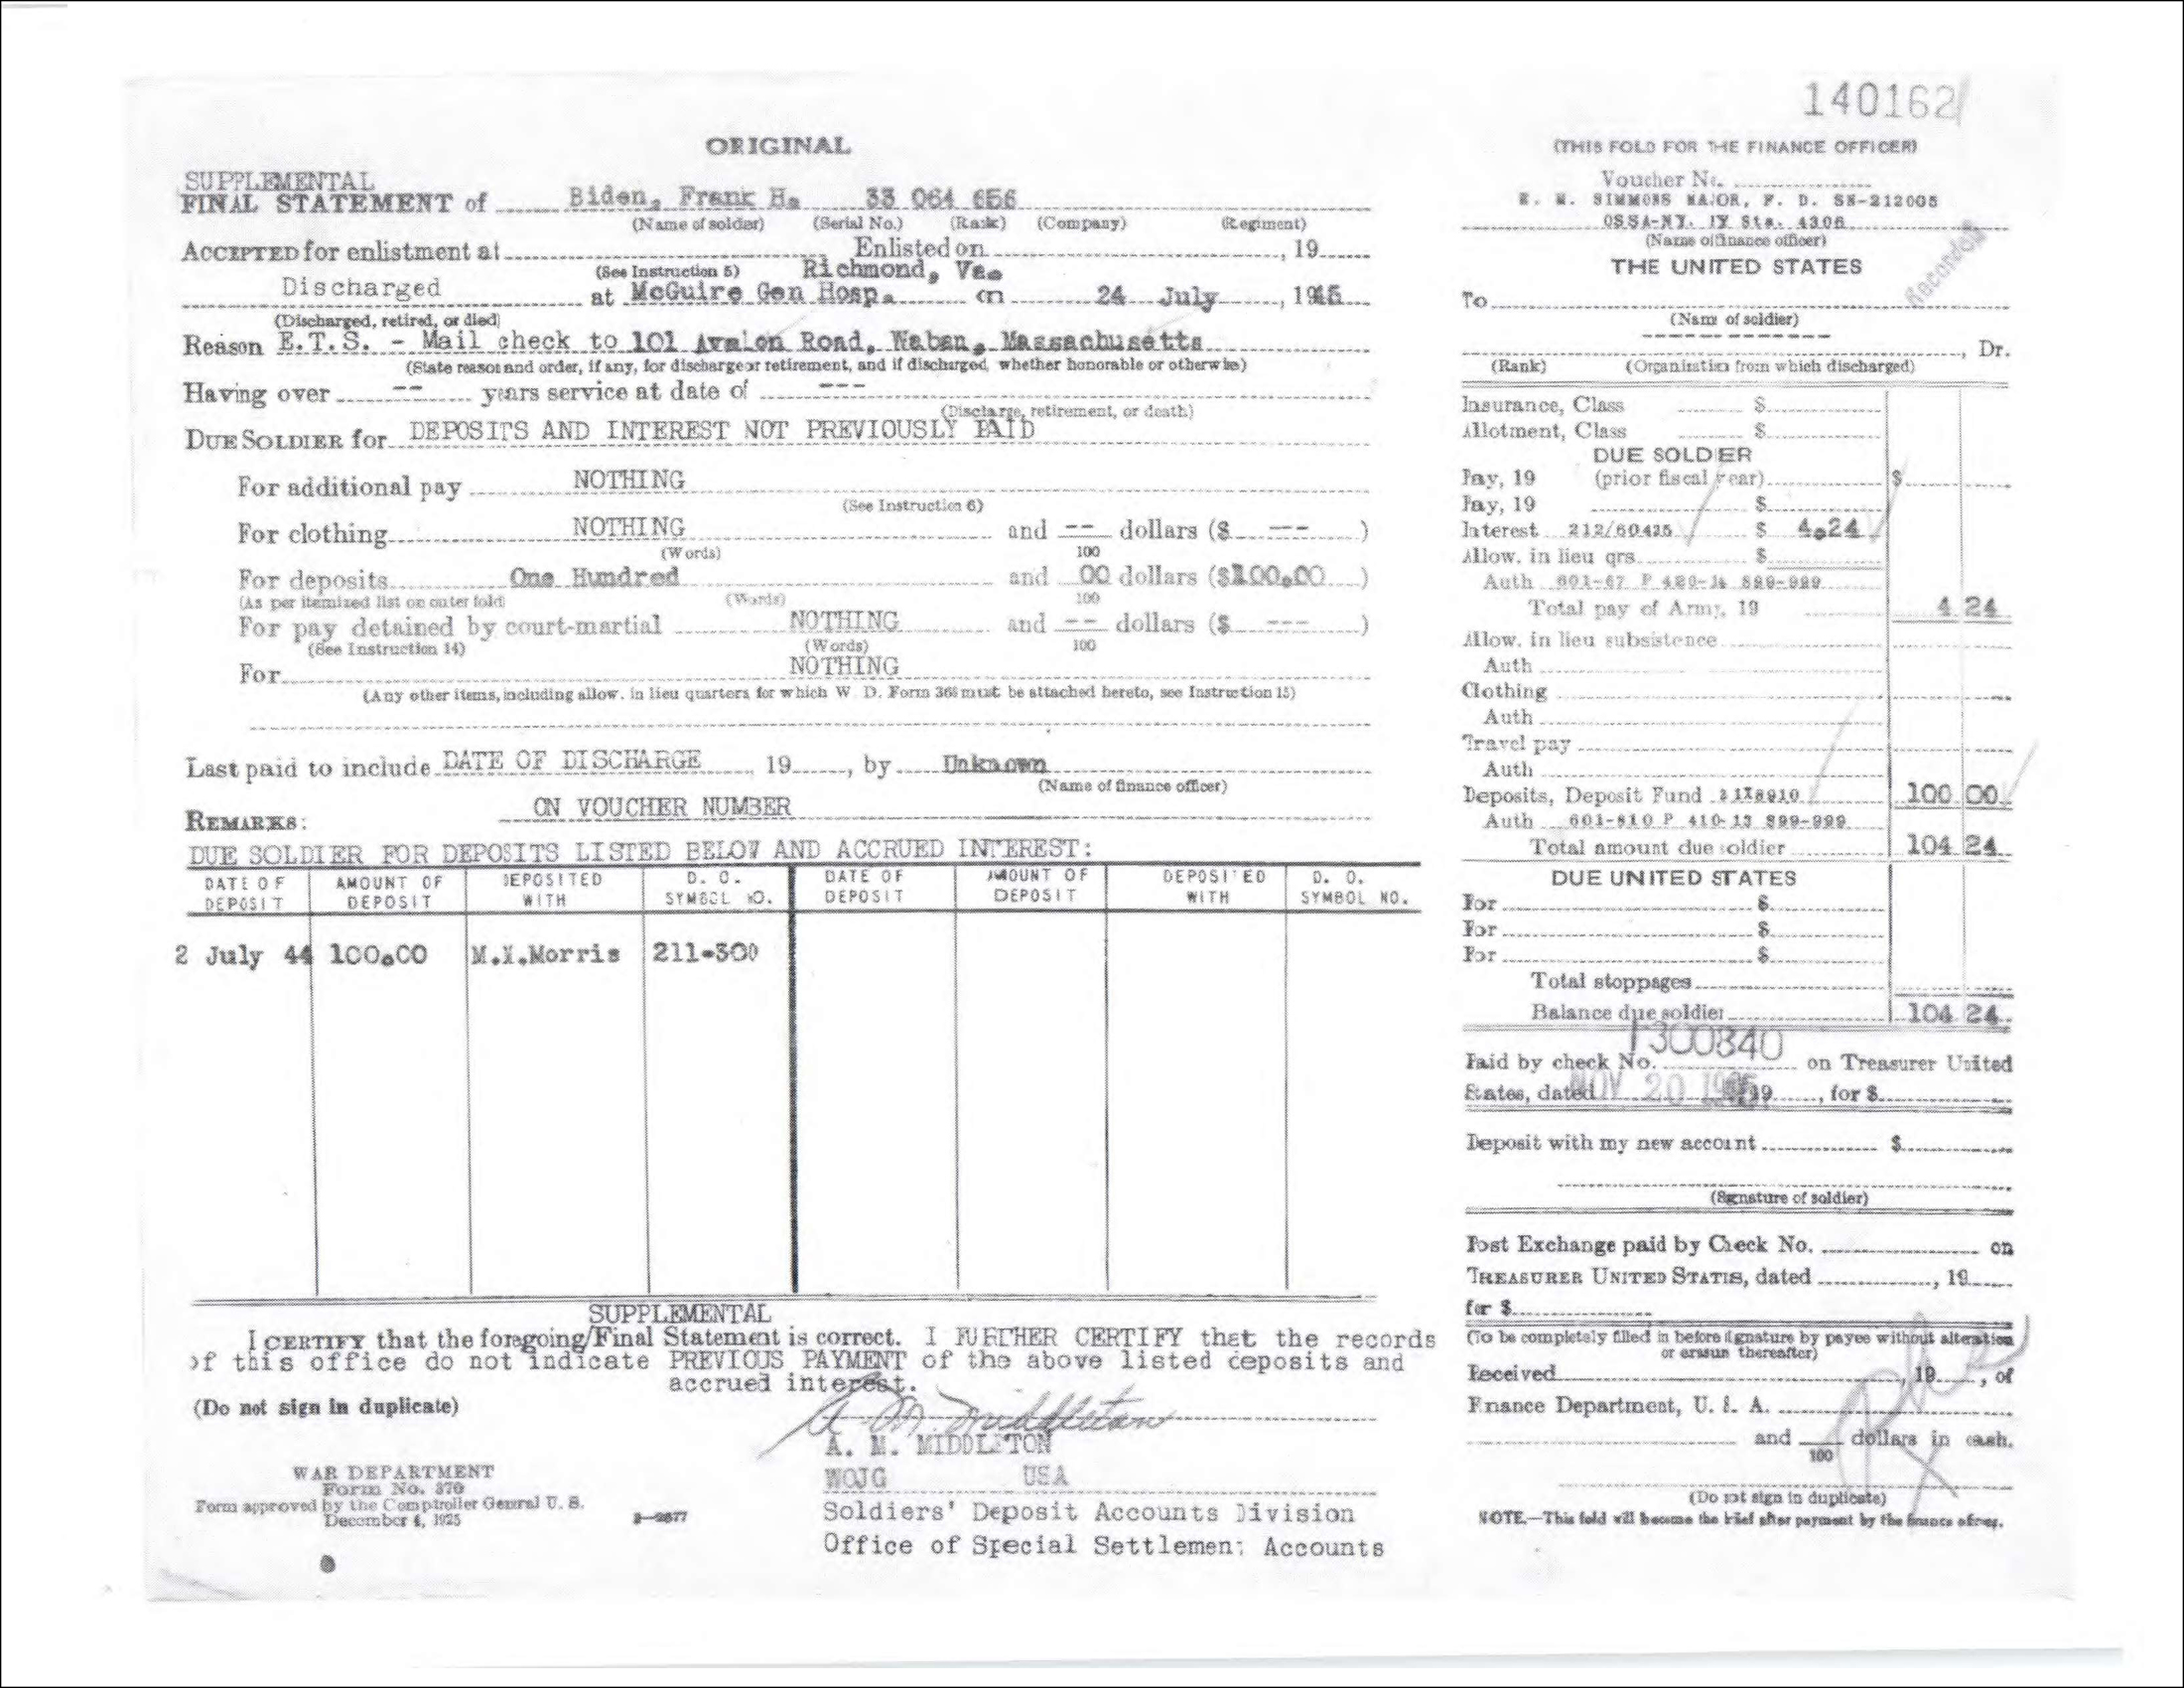 140162
ORIGINAL
SUPPLEMENTAL
FINAL STATEMENT of Biden, Frank H. 33 064 656
(Name of soldier) (Serial No.) (Rank) (Company) (Regiment)
ACCEPTED for enlistment at Enlisted on , 19
(See Instruction 5) Richmond, Va.
Discharged at McGuire Gen Hosp. on 24 July , 1945
(Discharged, retired, or died)
Reason E.T.S. - Mail check to 101 Avalon Road, Waban, Massachusetts
(State reason and order, if any, for discharge or retirement, and if discharged, whether honorable or otherwise)
Having over -- years service at date of ---
(Discharge, retirement, or death)
DUE SOLDIER for DEPOSITS AND INTEREST NOT PREVIOUSLY PAID
For additional pay NOTHING
(See Instruction 6)
For clothing NOTHING and -- dollars ($ --- )
(Words) 100
For deposits One Hundred and 00 dollars ($100.00 )
(As per itemized list on outer fold) (Words) 100
For pay detained by court-martial NOTHING and -- dollars ($ --- )
(See Instruction 14) (Words) 100
For NOTHING
(Any other items, including allow. in lieu quarters for which W. D. Form 366 must be attached hereto, see Instruction 15)
Last paid to include DATE OF DISCHARGE , 19 , by Unknown
(Name of finance officer)
ON VOUCHER NUMBER
REMARKS:
DUE SOLDIER FOR DEPOSITS LISTED BELOW AND ACCRUED INTEREST:
DATE OF DEPOSIT AMOUNT OF DEPOSIT DEPOSITED WITH D. O. SYMBOL NO. DATE OF DEPOSIT AMOUNT OF DEPOSIT DEPOSITED WITH D. O. SYMBOL NO.
2 July 44 100.00 Morris 211-300
SUPPLEMENTAL
I CERTIFY that the foregoing/Final Statement is correct. I FURTHER CERTIFY that the records
of this office do not indicate PREVIOUS PAYMENT of the above listed deposits and
accrued interest.
(Do not sign in duplicate)
A M Middleton
A. M. MIDDLETON
WOJG USA
Soldiers' Deposit Accounts Division
Office of Special Settlement Accounts
WAR DEPARTMENT
Form No. 370
Form approved by the Comptroller General U. S.
December 4, 1925
(THIS FOLD FOR THE FINANCE OFFICER)
Voucher No.
SIMMONS MAJOR, F. D. SN-212005
OSSA-NY. Sta. 4306
(Name of finance officer)
Recorded
THE UNITED STATES
To
(Name of soldier)
, Dr.
(Rank) (Organization from which discharged)
Insurance, Class $
Allotment, Class $
DUE SOLDIER
Pay, 19 (prior fiscal year) $
Pay, 19 $
Interest 212/60425 $ 4.24
Allow. in lieu qrs. $
Auth
Total pay of Army, 19 4 24
Allow. in lieu subsistence
Auth
Clothing
Auth
Travel pay
Auth
Deposits, Deposit Fund 100 00
Auth
Total amount due soldier 104 24
DUE UNITED STATES
For $
For $
For $
Total stoppages
Balance due soldier 104 24
Paid by check No. 1300840 on Treasurer United
States, dated NOV 20 19 , for $
Deposit with my new account $
(Signature of soldier)
Post Exchange paid by Check No. on
TREASURER UNITED STATES, dated , 19
for $
(To be completely filled in before signature by payee without alteration
or erasure thereafter)
Received , 19 , of
Finance Department, U. S. A.
and dollars in cash.
100
(Do not sign in duplicate)
NOTE.—This fold will become the brief after payment by the finance officer.